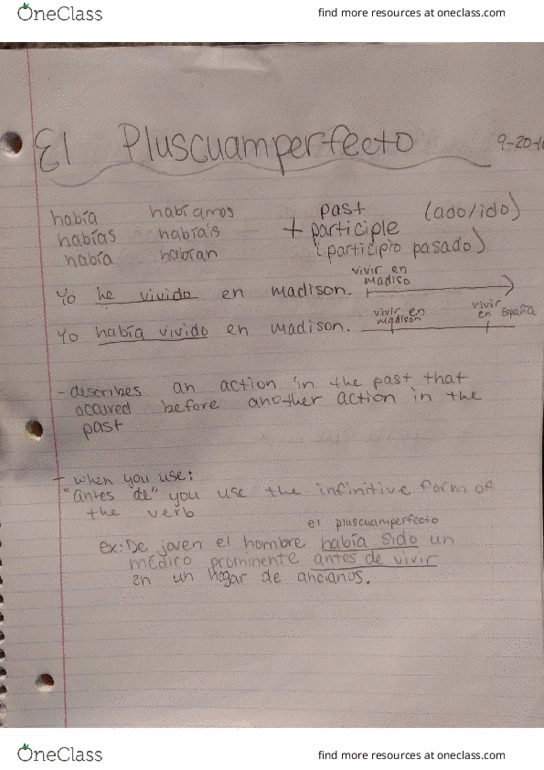 OneClass find more resources at oneclass.com
El Pluscuamperfecto 9-20-
había habíamos + past participle (ado/ido)
habías habíais (participio pasado)
había habían
vivir en madiso
Yo he vivido en madison.
vivir en madison vivir en España
Yo había vivido en madison.
- describes an action in the past that
occured before another action in the
past
- when you use:
"antes de" you use the infinitive form of
the verb
el pluscuamperfecto
ex: De joven el hombre había sido un
médico prominente antes de vivir
en un hogar de ancianos.
OneClass find more resources at oneclass.com